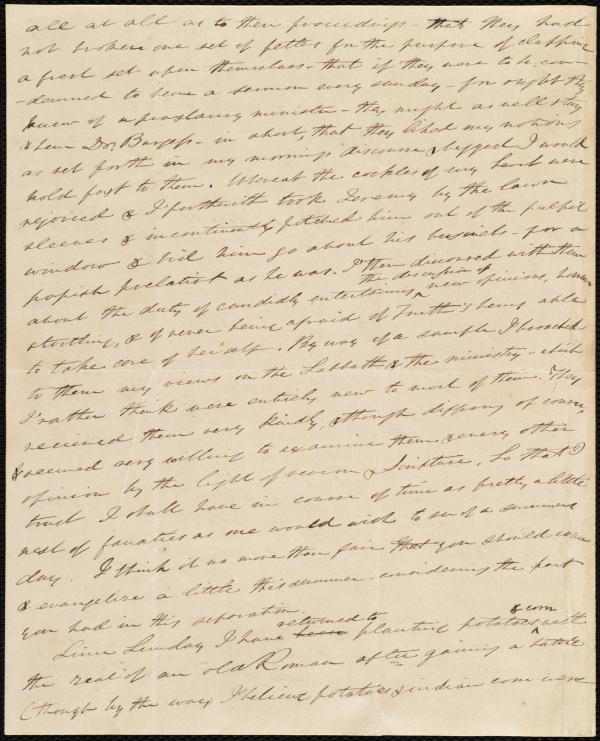 all at all as to their proceedings - that they had
not broken one set of fetters for the purpose of clapping
a fresh set upon themselves - that if they were to be con-
-demned to hear a sermon every sunday - for ought they
knew of a proslavery minister - they might as well stay
& hear Dr. Burgess - in short, that they liked my notions
as set forth in my morning's discourse & begged I would
hold fast to them. Whereat the cockles of my heart were
rejoiced & I forthwith took Jeremy by the lawn
sleeves & incontinently pitched him out of the pulpit
window & bid him go about his business - for a
popish prelatist as he was. I then discoursed with them
about the duty of candidly entertaining the discussion of new opinions, however
startling, & of never being afraid of Truth's being able
to take care of herself. By way of a sample I broached
to them my views on the Sabbath & the ministry - which
I rather think were entirely new to most of them. They
recieved them very kindly, & though differing of course,
& seemed very willing to examine them & every other
opinion by the light of reason & Scripture. So that I
trust I shall have in course of time as pretty a little
nest of fanatics as one would wish to see of a summer's
day. I think it no more than fair that you should come
& evangelize a little this summer - considering the part
you had in this separation.
Since Sunday I have been returned to planting potatoes & corn with
the zeal of an old Roman after gaining a battle
(though by the way I believe potatoes & indian corn were